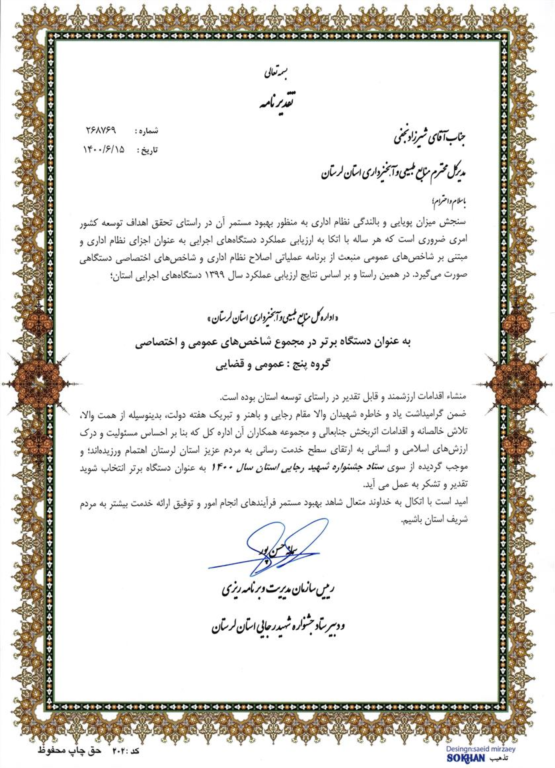 بسمه تعالی
تقدیرنامه
شماره : ۲۶۸۷۶۹
تاریخ : ۱۴۰۰/۶/۱۵
جناب آقای شیرزاد نجفی
مدیرکل محترم منابع طبیعی و آبخیزداری استان لرستان
باسلام و احترام؛
سنجش میزان پویایی و بالندگی نظام اداری به منظور بهبود مستمر آن در راستای تحقق اهداف توسعه کشور
امری ضروری است که هر ساله با اتکا به ارزیابی عملکرد دستگاه‌های اجرایی به عنوان اجزای نظام اداری و
مبتنی بر شاخص‌های عمومی منبعث از برنامه عملیاتی اصلاح نظام اداری و شاخص‌های اختصاصی دستگاهی
صورت می‌گیرد. در همین راستا و بر اساس نتایج ارزیابی عملکرد سال ۱۳۹۹ دستگاه‌های اجرایی استان؛
«اداره کل منابع طبیعی و آبخیزداری استان لرستان»
به عنوان دستگاه برتر در مجموع شاخص‌های عمومی و اختصاصی
گروه پنج : عمومی و قضایی
منشاء اقدامات ارزشمند و قابل تقدیر در راستای توسعه استان بوده است.
ضمن گرامیداشت یاد و خاطره شهیدان والا مقام رجایی و باهنر و تبریک هفته دولت، بدینوسیله از همت والا،
تلاش خالصانه و اقدامات اثربخش جنابعالی و مجموعه همکاران آن اداره کل که بنا بر احساس مسئولیت و درک
ارزش‌های اسلامی و انسانی به ارتقای سطح خدمت رسانی به مردم عزیز استان لرستان اهتمام ورزیده‌اند؛ و
موجب گردیده از سوی ستاد جشنواره شهید رجایی استان سال ۱۴۰۰ به عنوان دستگاه برتر انتخاب شوید
تقدیر و تشکر به عمل می آید.
امید است با اتکال به خداوند متعال شاهد بهبود مستمر فرآیندهای انجام امور و توفیق ارائه خدمت بیشتر به مردم
شریف استان باشیم.
رییس سازمان مدیریت و برنامه ریزی
و دبیر ستاد جشنواره شهید رجایی استان لرستان
کد :۲۰۲ حق چاپ محفوظ
Desingn:saeid mirzaey
تذهیب SOKHAN